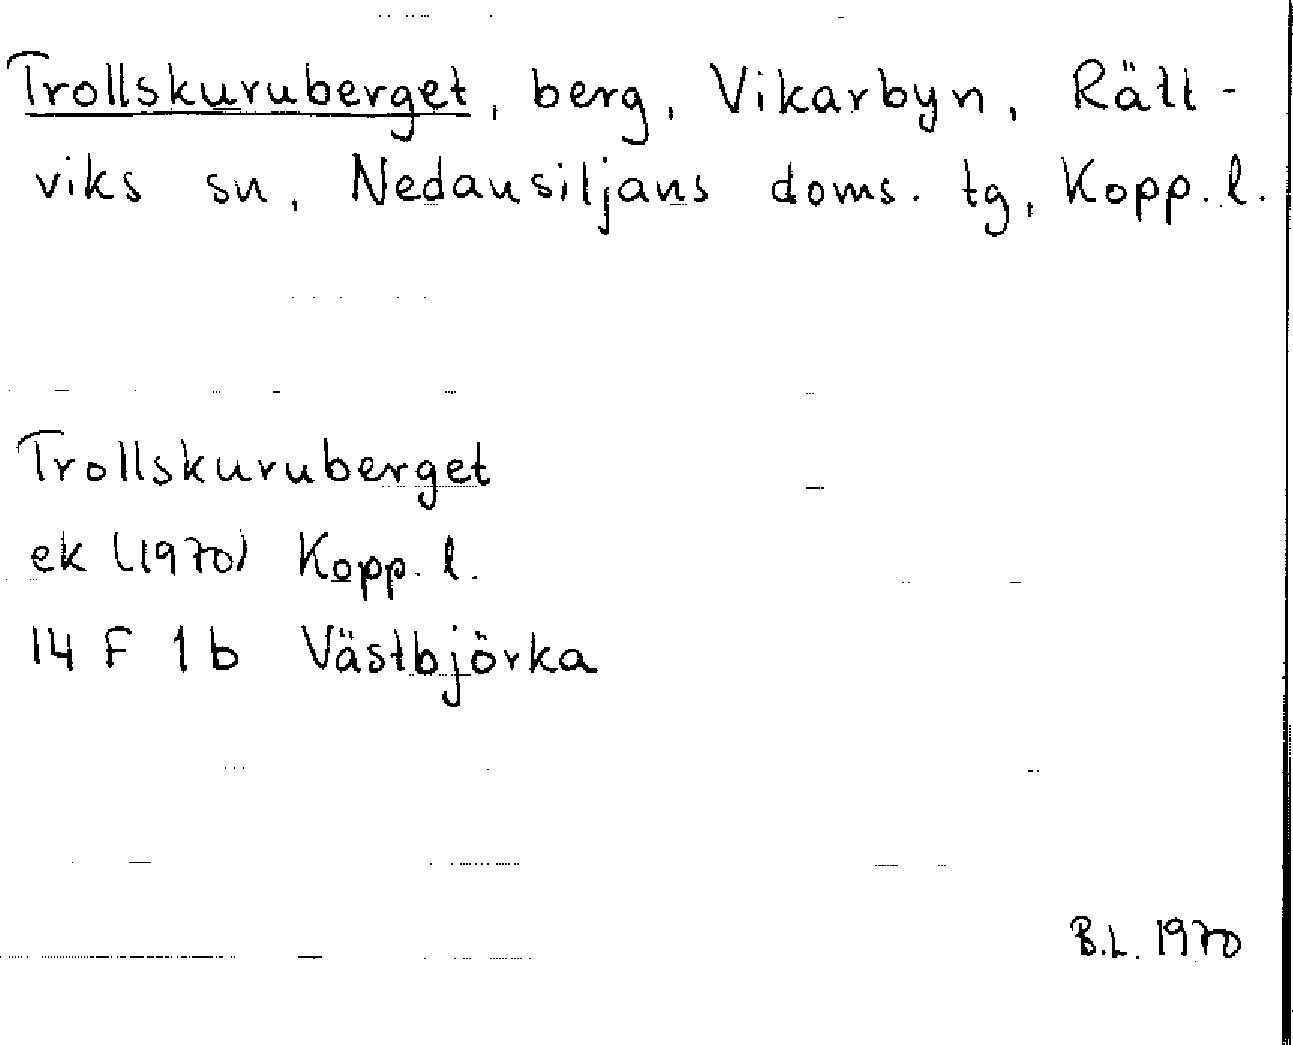 Trollskuruberget, berg, Vikarbyn, Rätt-
viks sn, Nedansiljans doms. tg, Kopp. l.
Trollskuruberget
ek (1970) Kopp. l.
14 F 1 b Västbjörka
B.L. 1970